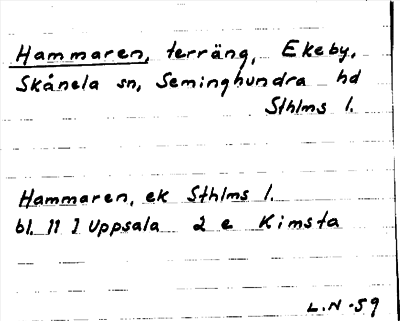 Hammaren, terräng, Ekeby,
Skånela sn, Seminghundra hd
Sthlms l.
Hammaren, ek Sthlms l.
bl. 11 I Uppsala 2 e Kimsta
L.N-59